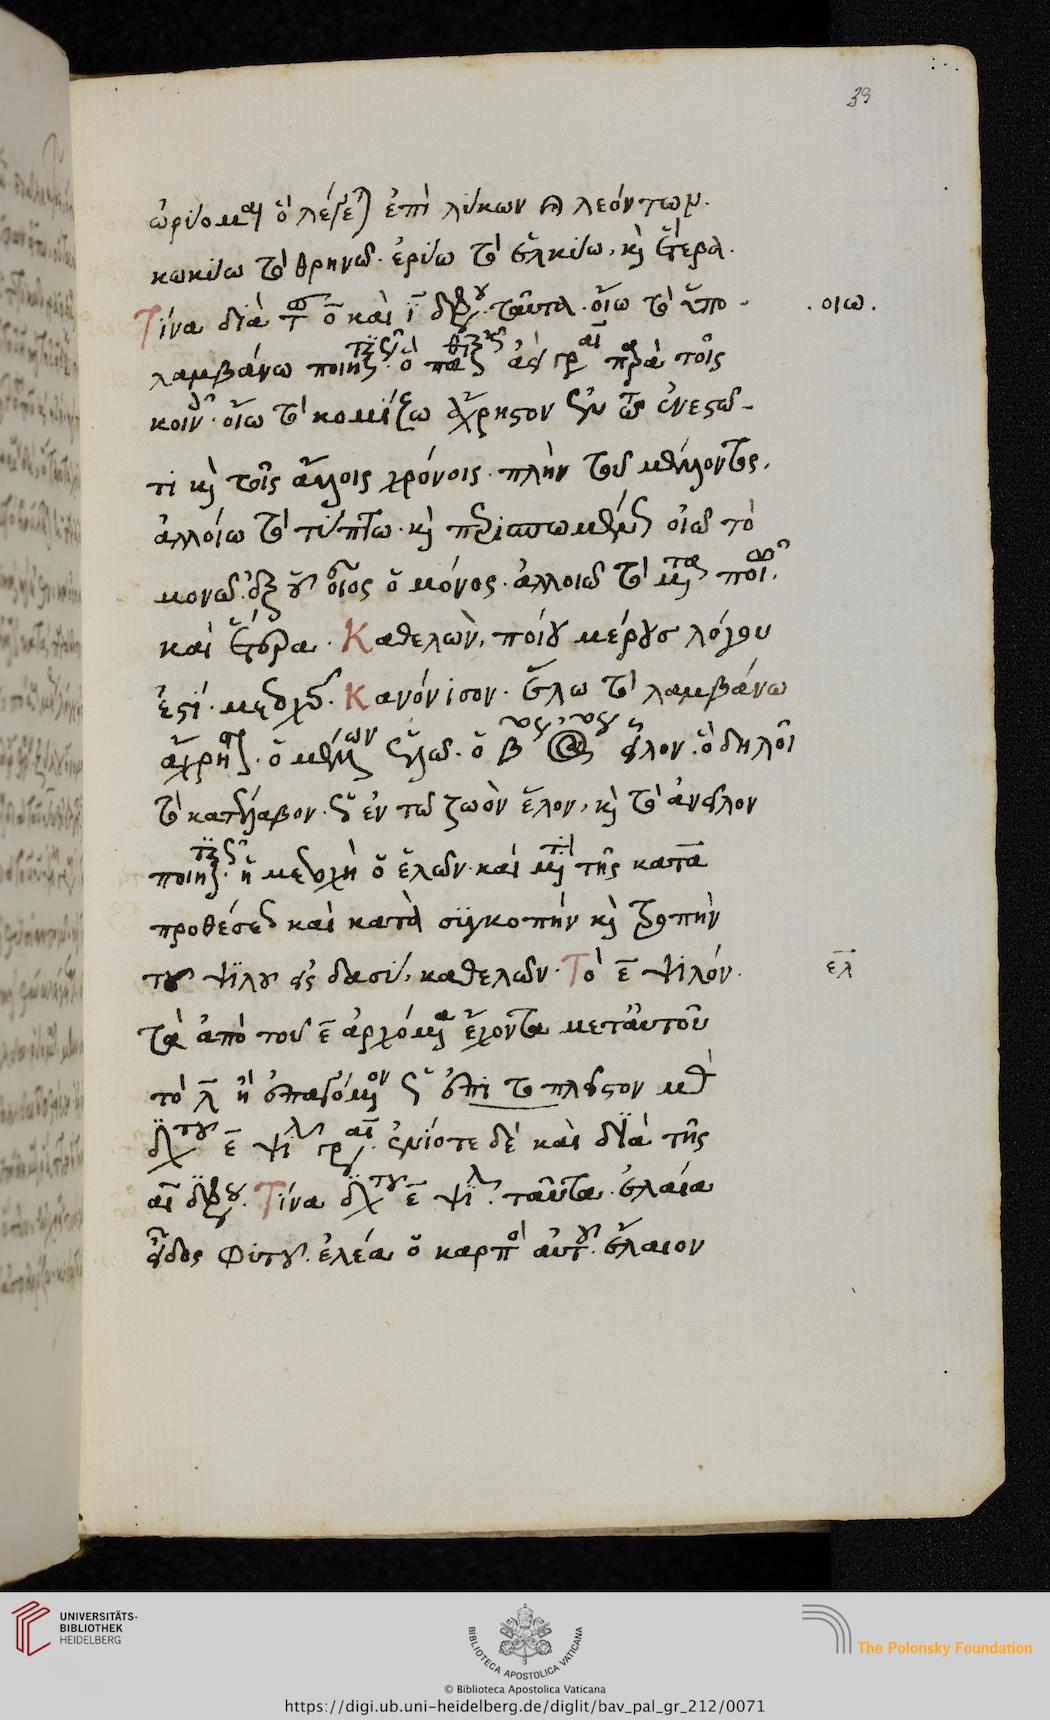 39
ὠρύομαι ὃ λέγεται ἐπὶ λύκων καὶ λεόντων.
κωκύω τὸ θρηνῶ. ἐρύω τὸ ἑλκύω, κὶ ἕτερα.
Τίνα διὰ τ ο καὶ ι ταῦτα. οἴω τὸ ὑπο-
. οιω.
λαμβάνω ποιητ ὁ παθ παρὰ τοῖς
κοιν. οἴω τὸ κομίζω ἄχρηστον ἐν τῶ ἐνεστῶ-
τι κὶ τοῖς ἄλλοις χρόνοις. πλὴν τοῦ μέλλοντος.
ἀλλοίω τὸ τύπτω. κὶ οἰῶ τὸ
μονῶ. ἐξ οὗ οἶος ὁ μόνος. ἀλλοιῶ τὸ
καὶ ἕτερα. Καθελὼν, ποίου μέρους λόγου
ἐστί. μετοχῆς. Κανόνισον. ἕλω τὸ λαμβάνω
ἄχρηστ. ὁ μέλλων ἑλῶ. ὁ β ἀόριστος εἷλον. ὃ δηλοῖ
τὸ κατέλαβον. ἐν τῶ ζωὸν ἕλον, κὶ τὸ ἀνεῖλον
ποιητ. ἡ μετοχὴ ὁ ἑλών. καὶ τῆς κατὰ
προθέσεως καὶ κατὰ συγκοπὴν κὶ τροπὴν
του ψιλου εἰς δασὺ, καθελών. Τὸ ε ψιλόν.
ελ
τὰ ἀπὸ τοῦ ε ἀρχόμενα ἔχοντα μετ' αὐτοῦ
τὸ λ ἢ ἐπαγόμενον ἐπὶ τὸ πλεῖστον
διὰ του ε ψιλ γρ. ἐνίοτε δὲ καὶ διὰ τῆς
αι διφθ. Τίνα διὰ του ε ψιλ. ταῦτα. ἐλαία
εἶδος φυτου. ἐλέα ὁ καρπὸς αὐτου. ἔλαιον
UNIVERSITÄTS-
BIBLIOTHEK
HEIDELBERG
BIBLIOTECA APOSTOLICA VATICANA
The Polonsky Foundation
© Biblioteca Apostolica Vaticana
https://digi.ub.uni-heidelberg.de/diglit/bav_pal_gr_212/0071